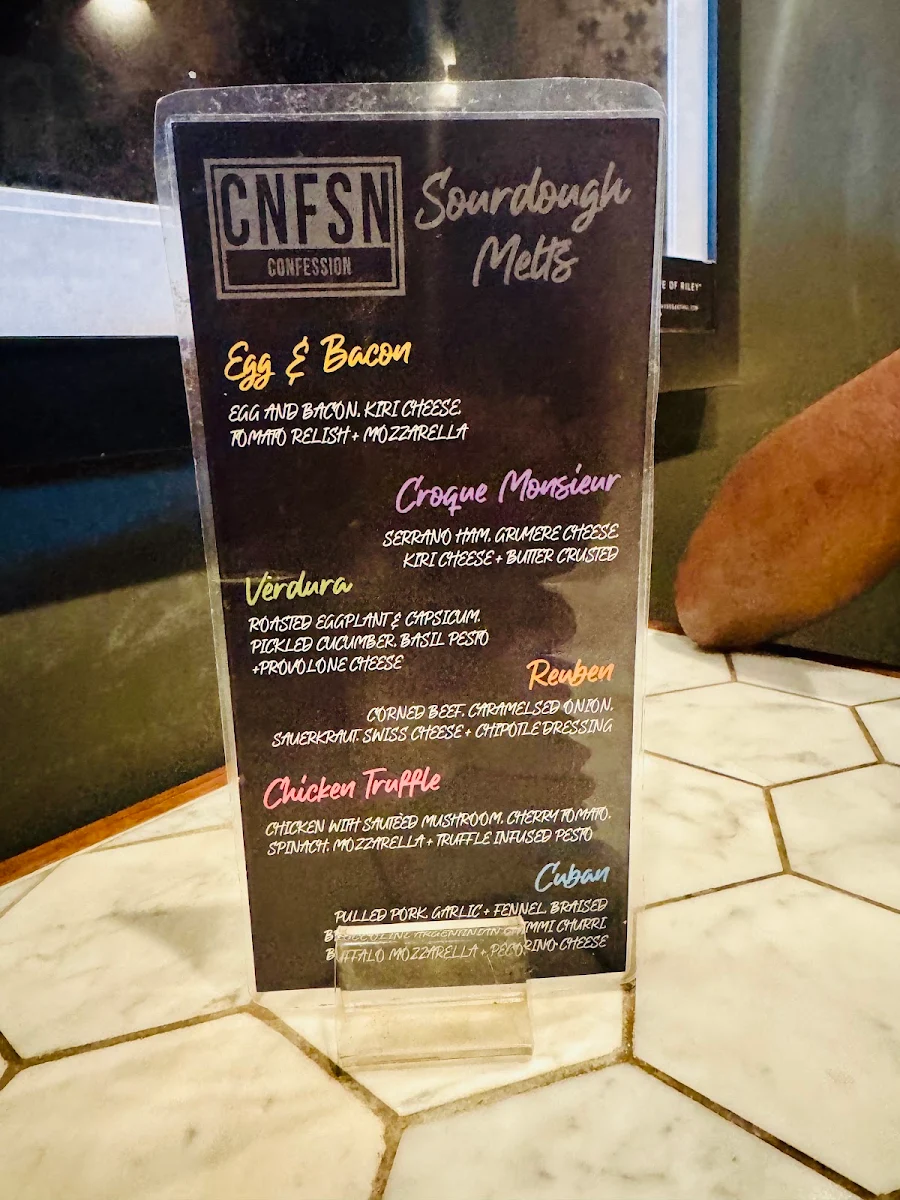 CNFSN
CONFESSION
Sourdough
Melts
Egg & Bacon
EGG AND BACON. KIRI CHEESE.
TOMATO RELISH + MOZZARELLA
Croque Monsieur
SERRANO HAM. GRUMERE CHEESE.
KIRI CHEESE + BUTTER CRUSTED
Verdura
ROASTED EGGPLANT & CAPSICUM.
PICKLED CUCUMBER. BASIL PESTO
+PROVOLONE CHEESE
Reuben
CORNED BEEF. CARAMELSED ONION.
SAUERKRAUT. SWISS CHEESE + CHIPOTLE DRESSING
Chicken Truffle
CHICKEN WITH SAUTÉED MUSHROOM. CHERRY TOMATO.
SPINACH. MOZZARELLA + TRUFFLE INFUSED PESTO
Cuban
PULLED PORK. GARLIC + FENNEL. BRAISED
BROCCOLINI. ARGENTINIAN CHIMMI CHURRI
BUFFALO MOZZARELLA + PECORINO CHEESE
E OF RILEY"